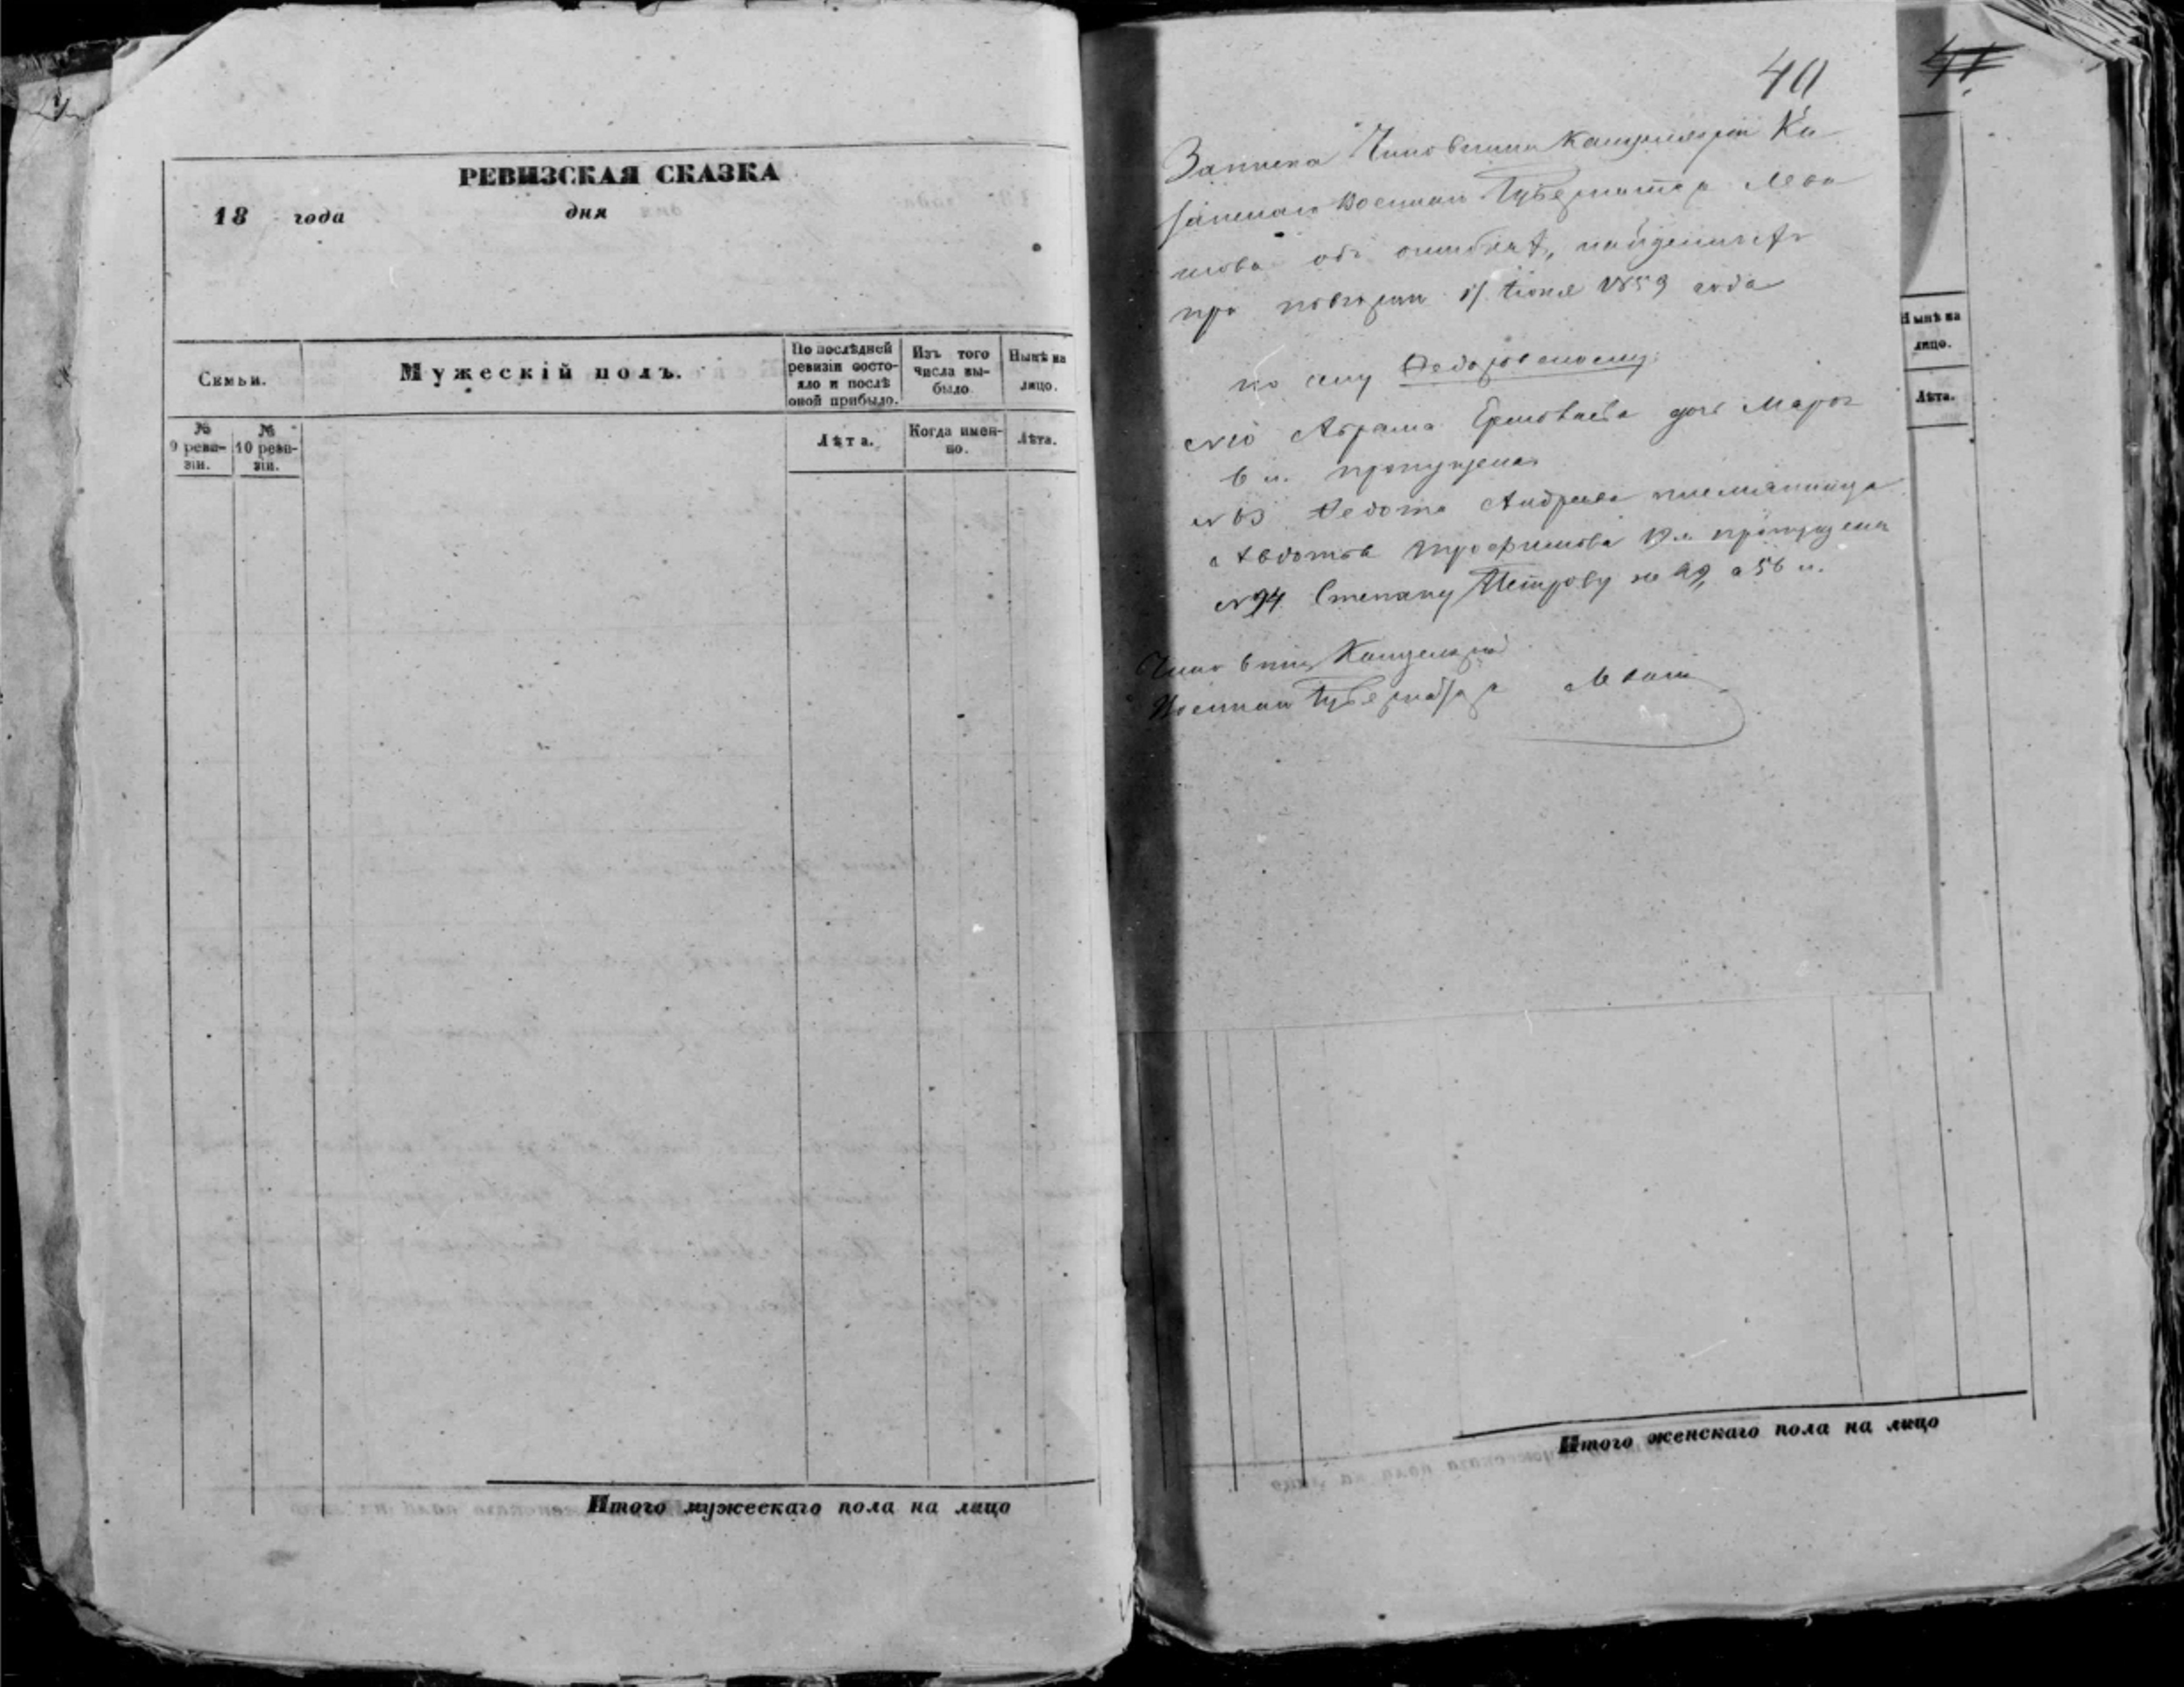 РЕВИЗСКАЯ СКАЗКА
18 года дня
Семьи.
Мужескій полъ.
По послѣдней ревизіи состо-
яло и послѣ
оной прибыло.
Изъ того
числа вы-
было
Нынѣ на
лицо.
№
9 реви-
зіи.
№
10 реви-
зіи.
Лѣта.
Когда имен-
но.
Лѣта.
Итого мужескаго пола на лицо
40
41
Записка Чиновника Канцеляріи Ка
занскаго Военнаго Губернатора
объ ошибкахъ, найденныхъ
при повѣрки Іюня 1859 года
по селу Федоровскому
Абрама дочь
6 л. пропущена
Федота Андреева племянница
Авдотья Трофимова пропущена
№ 94 Степану Петрову не 49, а 56 л.
Чиновникъ Канцеляріи
Военнаго Губернатора
Нынѣ на
лицо.
Лѣта.
Итого женскаго пола на лицо